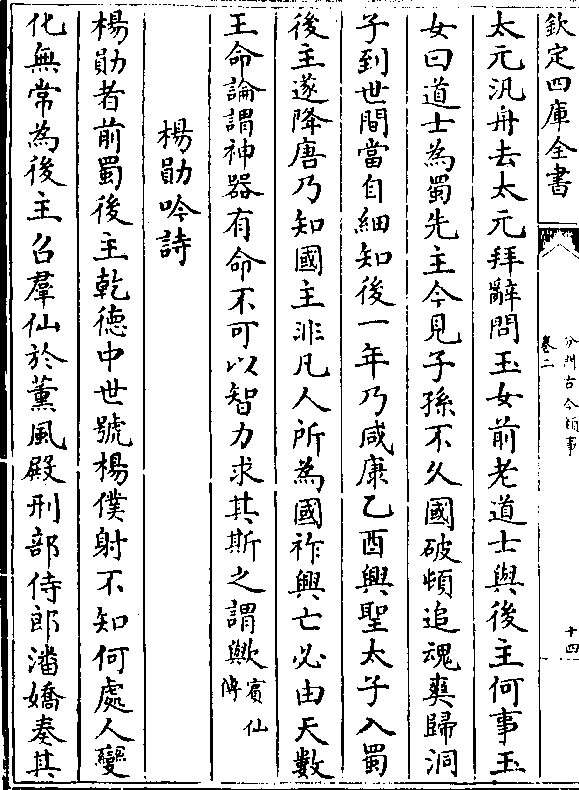 欽定四庫全書
分門古今類事
卷二
十四
太元汎舟去太元拜辭問玉女前老道士與後主何事玉
女曰道士為蜀先主今見子孫不久國破頓追魂爽歸洞
子到世間當自細知後一年乃咸康乙酉興聖太子入蜀
後主遂降唐乃知國主非凡人所為國祚興亡必由天數
王命論謂神器有命不可以智力求其斯之謂歟賓仙
傳
楊勛吟詩
楊勛者前蜀後主乾德中世號楊僕射不知何處人變
化無常為後主召羣仙於薰風殿刑部侍郎潘嬌奏其